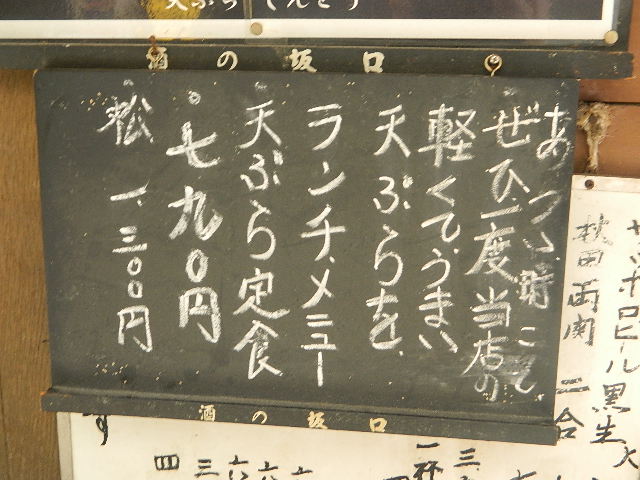 天ぷら てんどう
酒の坂口
あつい時こそ
ぜひ一度当店の
軽くて、うまい
天ぷらを、
ランチ、メニュー
天ぷら定食
七九〇円
松 一、三〇〇円
酒の坂口
サッポロビール黒生
秋田両関 二合
一杯